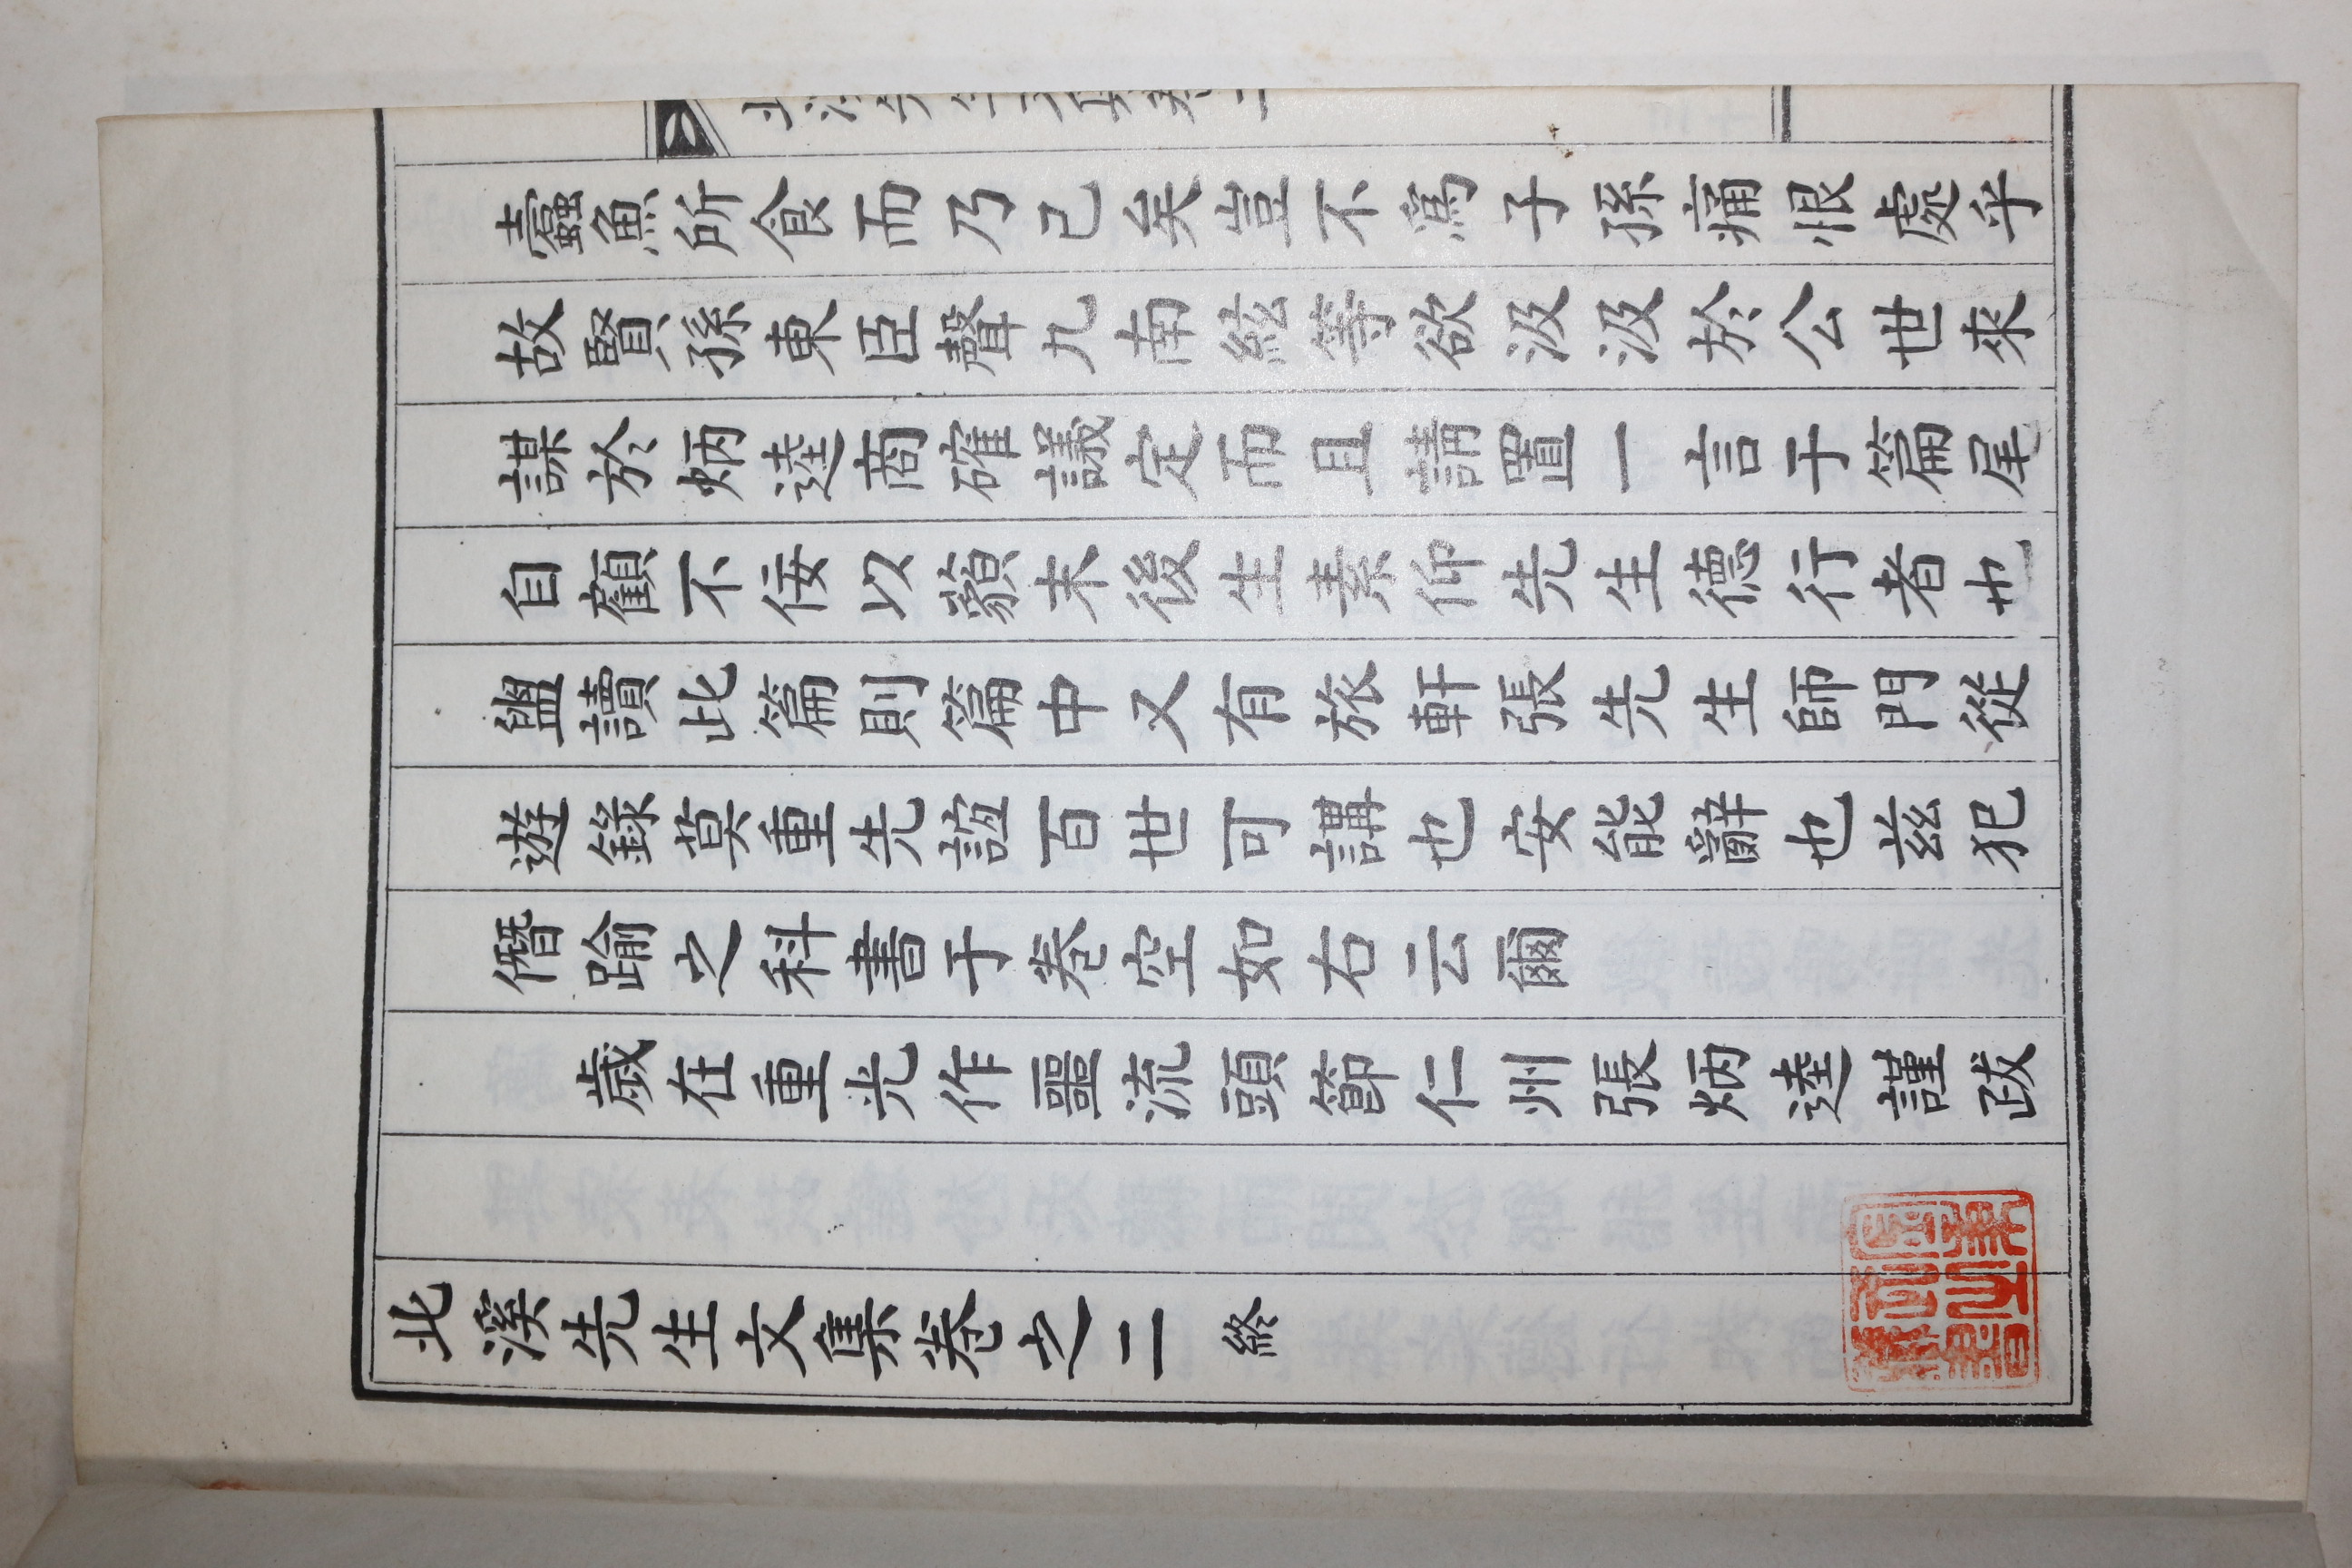 北溪先生文集卷二
蠹魚所食而乃已矣豈不爲子孫痛恨處乎
故賢孫東臣聲九南絃等欲汲汲於公世來
謀於炳逵商確議定而且請置一言于篇尾
自顧不佞以藐末後生素仰先生德行者也
盥讀此篇則篇中又有旅軒張先生師門從
遊錄莫重先誼百世可講也安能辭也茲犯
僭踰之科書于卷空如右云爾
歲在重光作噩流頭節仁州張炳逵謹跋
北溪先生文集卷之二 終